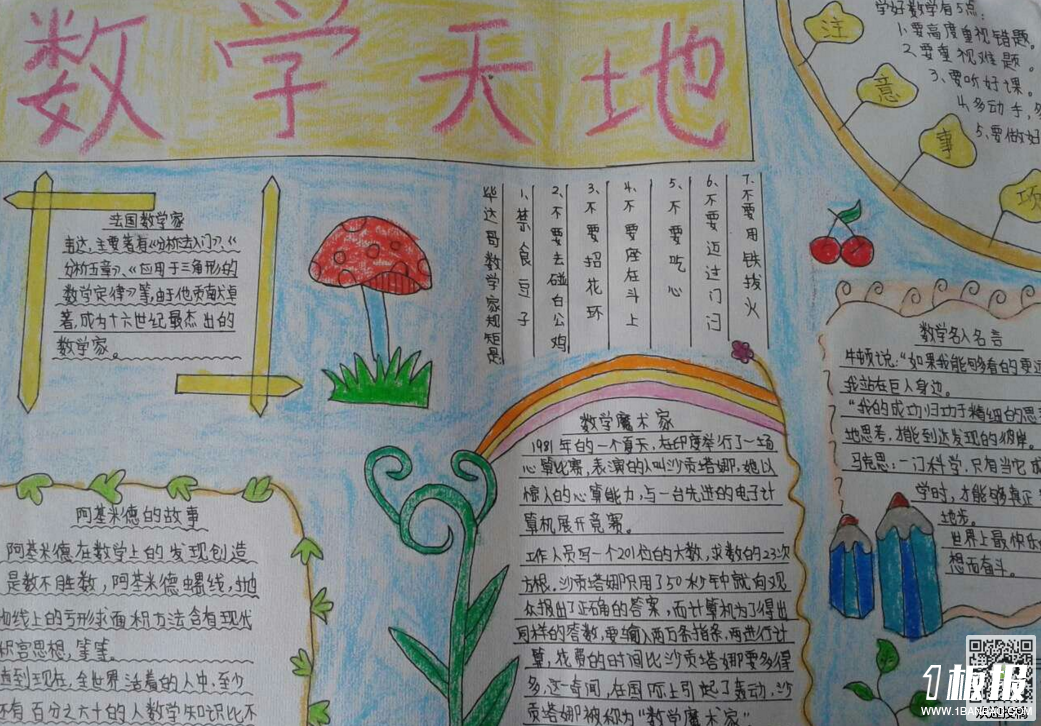 数学天地
注
意
事
项
学好数学有5点:
1.要高度重视错题。
2.要重视难题。
3.要听好课。
4.多动手,多
5.要做好
法国数学家
韦达,主要著有《分析法入门》、《
分析五章》、《应用于三角形的
数学定律》等,由于他贡献卓
著,成为十六世纪最杰出的
数学家。
毕达哥数学家规矩是
1、禁食豆子
2、不要去碰白公鸡
3、不要招花环
4、不要座在斗上
5、不要吃心
6、不要迈过门闩
7、不要用铁拔火
数学名人名言
牛顿说:“如果我能够看的更远
我站在巨人身边。
“我的成功归功于精细的思
地思考,才能到达发现的彼岸。
马克思:一门科学,只有当它成
学时,才能够真正
地步。
世界上最快乐
想而奋斗。
数学魔术家
1981年的一个夏天,在印度举行了一场
心算比赛,表演的人叫沙贡塔娜,她以
惊人的心算能力,与一台先进的电子计
算机展开竞赛。
工作人员写一个201位的大数,求数的23次
方根。沙贡塔娜只用了50秒钟就向观
众报出了正确的答案,而计算机为了得出
同样的答数,要输入两万条指条,再进行计
算,花费的时间比沙贡塔娜要多得
多。这奇闻,在国际上引起了轰动,沙
贡塔娜被称为“数学魔术家”
阿基米德的故事
阿基米德在数学上的发现创造
是数不胜数,阿基米德螺线,抛
物线上的弓形求面积方法含有现代
积宫思想,等等。
直到现在,全世界活着的人中,至少
还有百分之六十的人数学知识比不
1板报
WWW.1BANBAO.COM